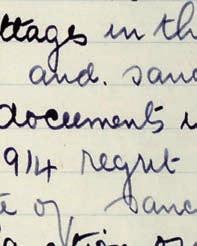 ttages in th
and. sand
documents i
914 regret
te of sanc
ation